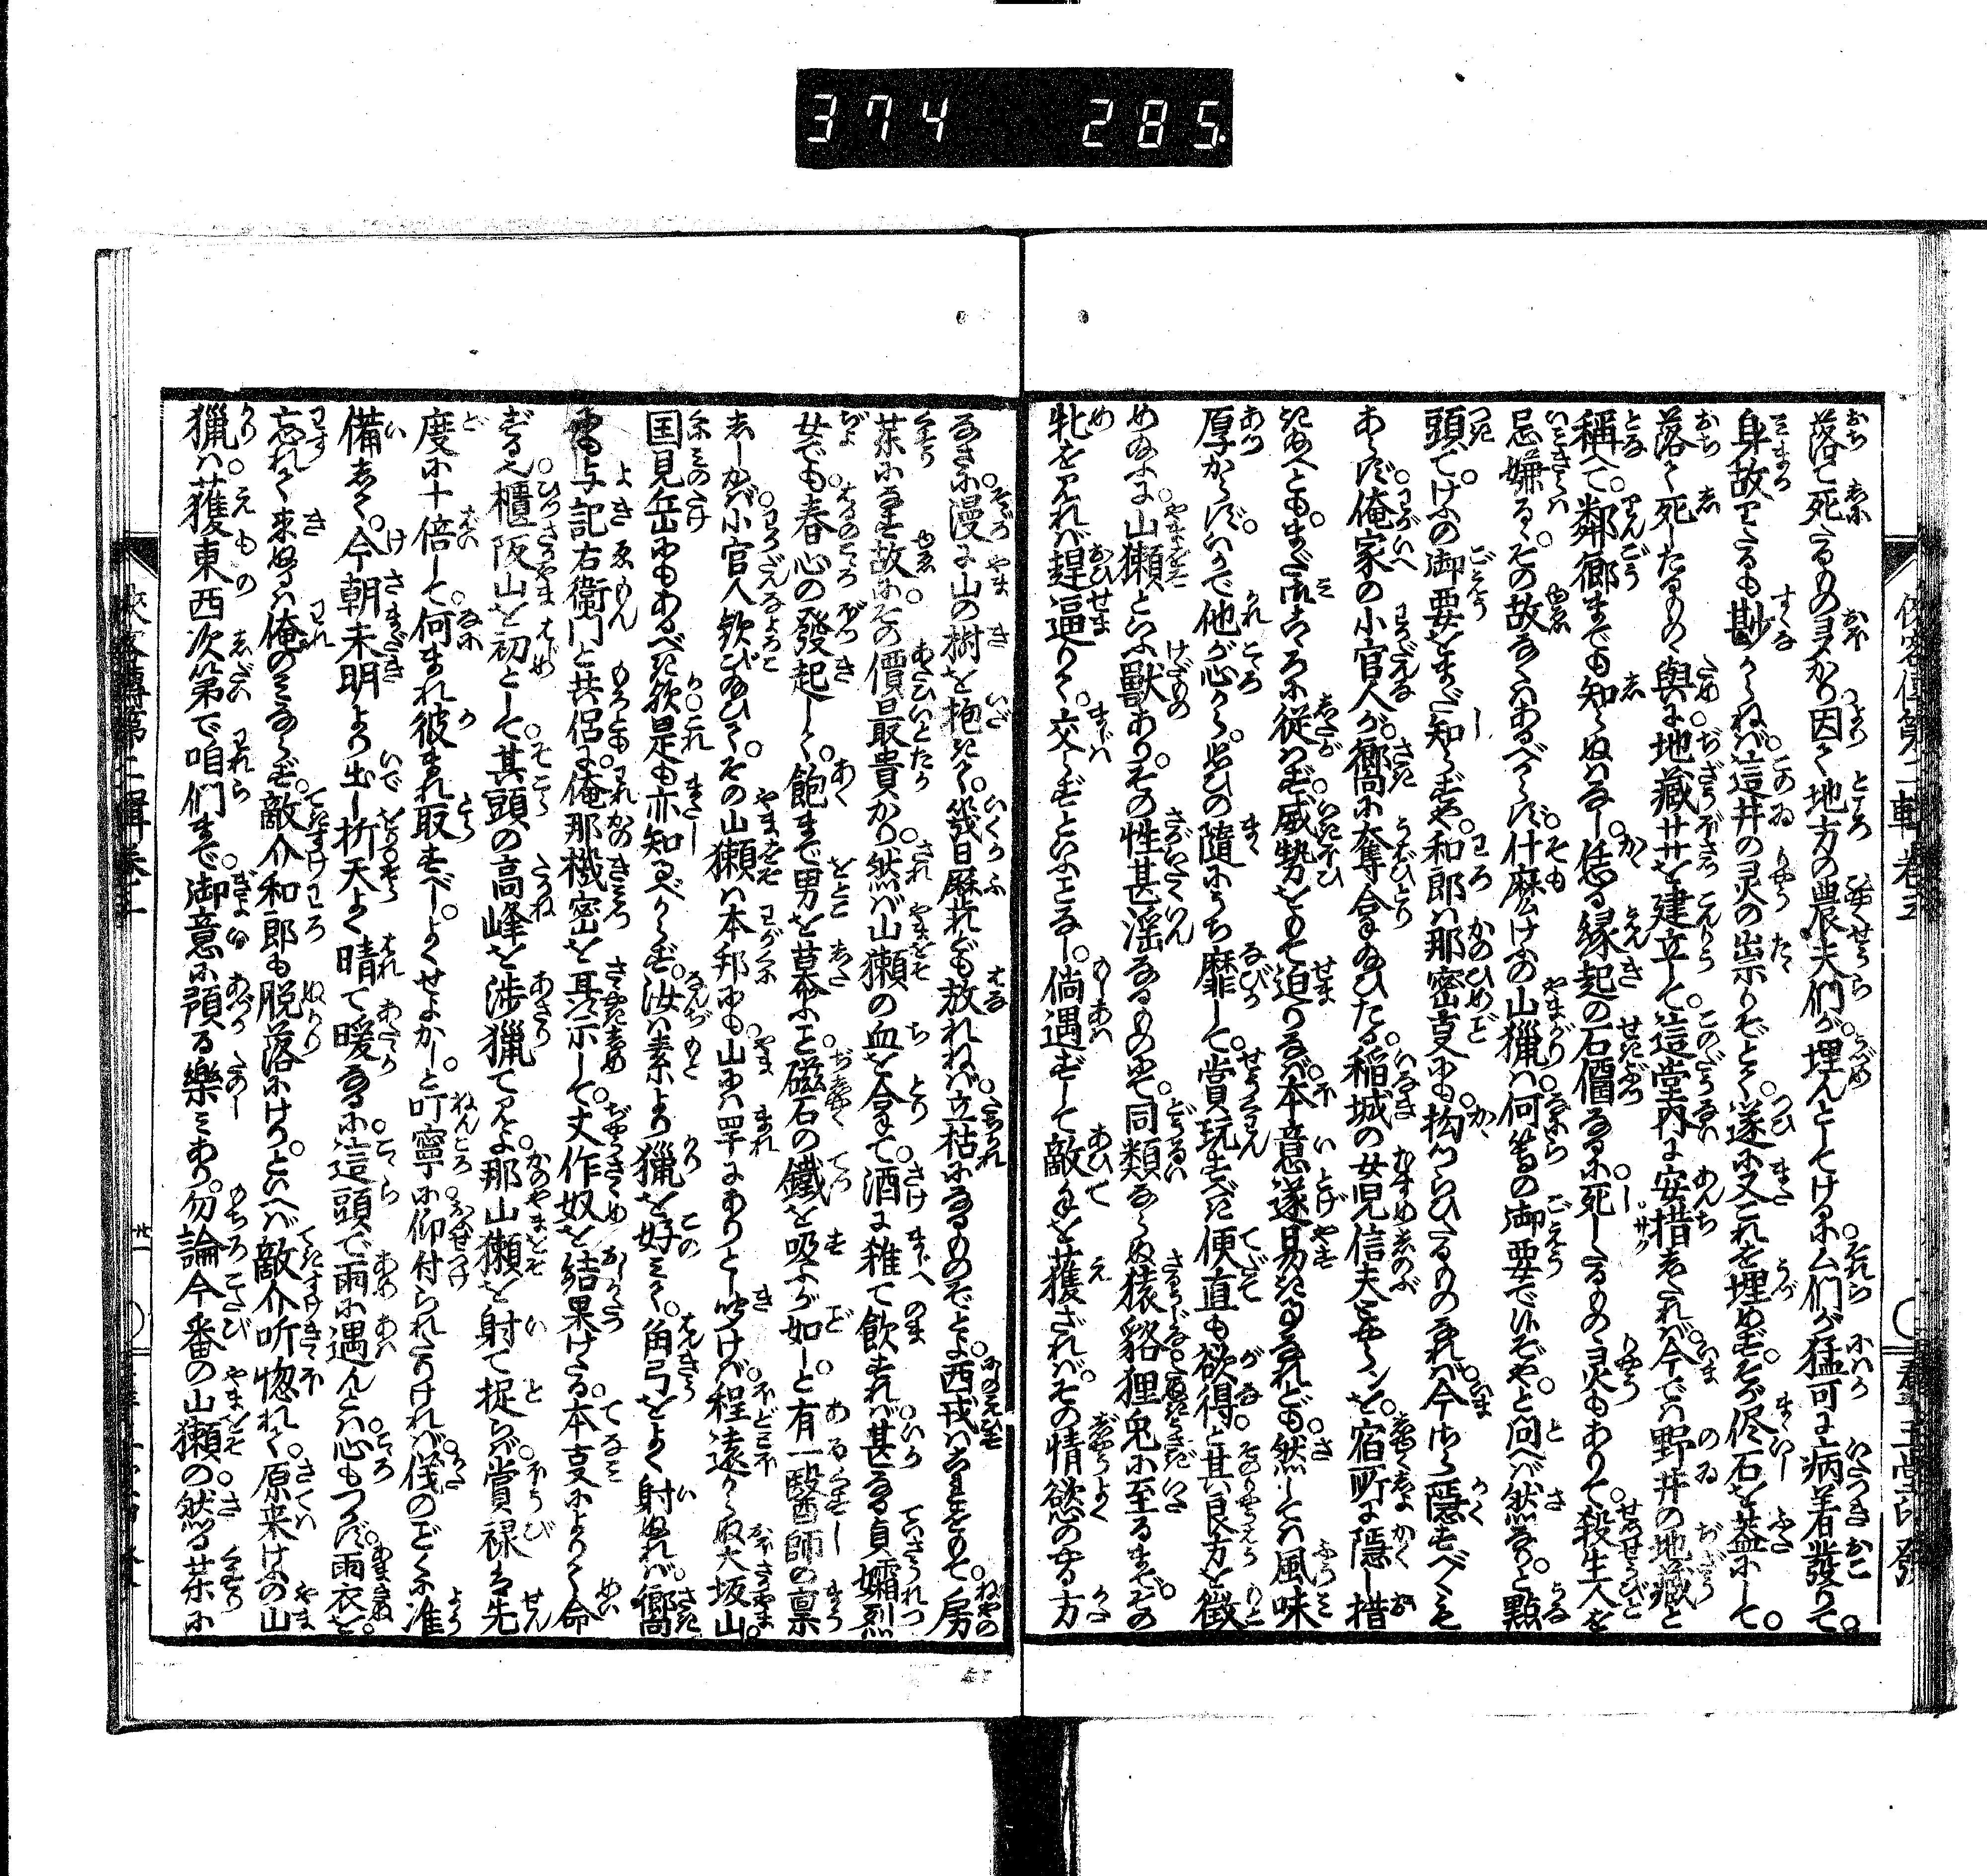 374 285
落て死たるもあり因て地方の農夫們が埋んとしけるにム們が猛可に病着發りて。
身故たるも尠からねば這井の灵の祟りぞとて。遂に又これを埋めず。そが侭石を蓋にして。
落て死したるものゝ與に地藏井を建立して。這堂内に安措したれば今では野井の地藏と
稱へて。鄰郷までも知らぬはなし。恁る縁起の石櫃なるに死したるものゝ灵もありて。殺生人を
忌嫌る。その故なくはあるべからず。什麼けふの山獵は何等の御要で候ぞやと問へば然なりと點
頭て。けふの御要をまだ知らずや。和郎は那密事にも。拘らひたるものなれば今さら隱すべくも
あらず。俺家の小官人が嚮に奪拿給ひたる。稲城の女児信夫とやらンを。宿所に隱し措
給へどもまだ氷ごゝろに従はず。威勢をもて迫りなば本意遂易きるなれども。然しては風味
厚からず。いかで他が心から。思ひの隨にうち靡して。賞玩すべき便直も欲得と其良方を徴
めしに山獺といふ獸あり。その性甚淫なるものにて。同類ならぬ猿貉狸兎に至るまで。その
牝を見れば趕逼りて。交らずといふことなし。倘遇ずして敵手を獲ざれば。その情慾のやる方
なさに漫に山の樹を抱きて。幾日歴れども放れねば立枯になるものぞとよ。西戎はこれをもて。房
薬にする故にその價最貴かり。然ば山獺の血を拿て酒に雑て飲すれば甚なる貞孀烈
女でも。春心の發起して。飽まで男を慕ふこと。磁石の鐵を吸ふが如しと。有一醫師の稟
しゝかば小官人歓び給ひて。その山獺は本邦にも山には罕にありとし聞けば。程遠からぬ大坂山。
国見岳にもあるべき欤。是も亦知るべからず。汝は素より獵を好みて。角弓をよく射ぬれば嚮
にも与記右衛門と共侶に俺那機密を示して。丈作奴を結果けたる。本事によりて命
ずる也。櫃阪山を初として。其頭の高峰を渉獵て見よ。那山獺を射て捉らば賞禄は先
度に十倍して何まれ彼まれ取すべし。よくせよかし。と叮寧に仰付られたりければ。儀のごとく准
備して。今朝未明より出し折天よく晴て暖なるに這頭で雨に遇んとは心もつかず。雨衣を。
忘れて来ぬるは俺のみならず。敵介和郎も脱落にけり。といへば敵介听惚れて。原来けふの山
獵は。獲東西次第で咱們まで。御意に預る樂みあり。勿論今番の山獺の。然る薬に